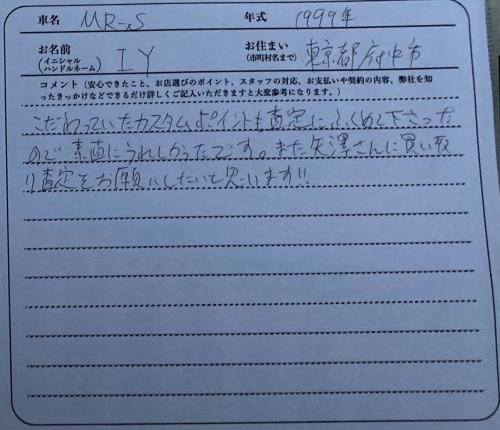 車名 MR-S 年式 1999年
お名前 (イニシャル ハンドルネーム) I Y お住まい (市町村名まで) 東京都府中市
コメント(安心できたこと、お店選びのポイント、スタッフの対応、お支払いや契約の内容、弊社を知
ったきっかけなどできるだけ詳しくご記入いただきますと大変参考になります。)
こだわっていたカスタムポイントも査定にふくめて下さった
ので素直にうれしかったです。また矢澤さんに買い取
り査定をお願いしたいて思います!!